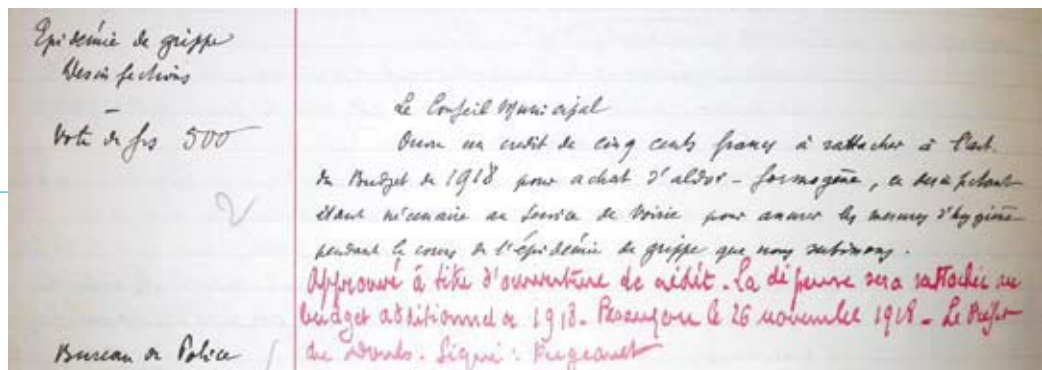 Epidémie de grippe
Desinfections
Vote de frs 500
Le Conseil Municipal
Ouvre un crédit de cinq cents francs à rattacher à l'art.
du Budget de 1918 pour achat d'aldor-formogène, ce désinfectant
étant nécessaire au Service de Voirie pour assurer les mesures d'hygiène
pendant le cours de l'épidémie de grippe que nous subissons.
Approuvé à titre d'ouverture de crédit. La dépense sera rattachée au
budget additionnel de 1918. Besançon le 26 novembre 1918. Le Préfet
du Doubs. Signé :
Bureau de Police